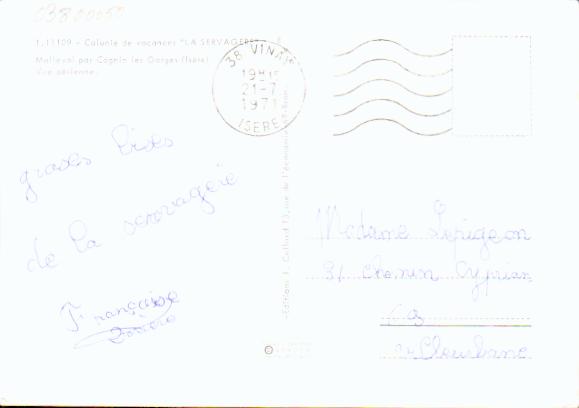 03800050
1.11109 - Colonie de vacances "LA SERVAGERE"
Malleval par Cognin les Gorges (Isère)
Vue aérienne.
38 VINAY
19H15
21-7
1971
ISERE
groses bises
de la servagerie
Françoise
Madame Lepigeon
31 chemin Cyprian
Villeurbanne
©